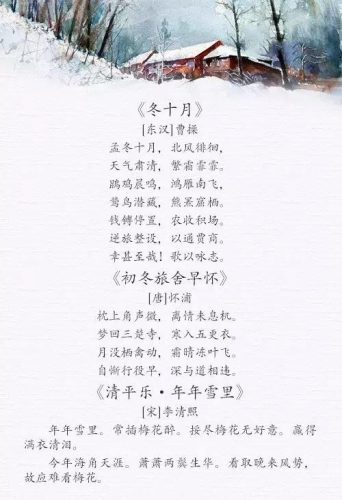 《冬十月》
[东汉]曹操
孟冬十月，北风徘徊，
天气肃清，繁霜霏霏。
鹍鸡晨鸣，鸿雁南飞，
鸷鸟潜藏，熊罴窟栖。
钱镈停置，农收积场。
逆旅整设，以通贾商。
幸甚至哉！歌以咏志。
《初冬旅舍早怀》
[唐]怀浦
枕上角声微，离情未息机。
梦回三楚寺，寒入五更衣。
月没栖禽动，霜晴冻叶飞。
自惭行役早，深与道相违。
《清平乐·年年雪里》
[宋]李清照
年年雪里。常插梅花醉。挼尽梅花无好意。赢得
满衣清泪。
今年海角天涯。萧萧两鬓生华。看取晚来风势，
故应难看梅花。